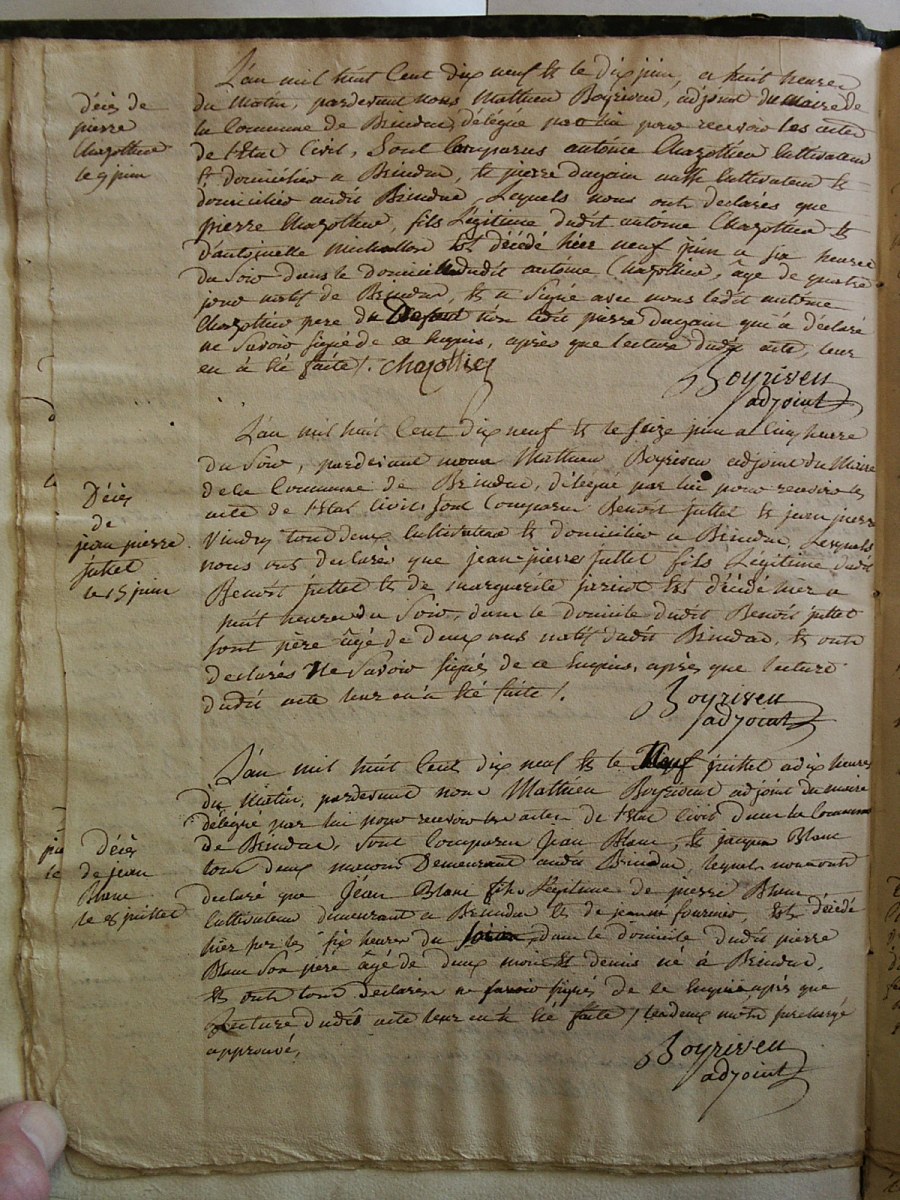 décès de
pierre
Chazottier
le 9 juin
L'an mil huit Cent dix neuf & le dix juin, a huit heures
du Matin, pardevant nous Mathieu Boyriven, adjoint du maire de
la Commune de Brindas, délégué par lui pour recevoir les actes
de l'Etat Civil, Sont Comparus antoine Chazottier Cultivateur
& domicilié a Brindas, & pierre dugain aussi Cultivateur &
domicilié audit Brindas, Lesquels nous ont declarés que
pierre Chazottier, fils Légitime dudit antoine Chazottier &
d'antoinette michallon Est décédé hier neuf juin a six heures
du Soir dans le domicile dudit antoine Chazottier, âgé de quatre
jours natif de Brindas, & a Signé avec nous ledit antoine
Chazottier pere du Defunt non ledit pierre dugain qui a déclaré
ne Savoir signé de ce Enquis, après que lecture dudit acte, leur
en à été faite /. Chazottier
Boyriven
adjoint
Décès
de
jean pierre
juttet
le 15 juin
L'an mil huit Cent dix neuf & le Seize juin a Cinq heures
du Soir, pardevant nous Mathieu Boyriven adjoint du Maire
de la Commune de Brindas, délégué par lui pour recevoir les
acte de l'Etat Civil, Sont Comparus Benoit juttet & jean pierre
Vindry tout deux Cultivateurs & domiciliés a Brindas, Lesquels
nous ont declarés que jean-pierre juttet fils Légitime dudit
Benoit juttet & de marguerite jariot Est décédé hier a
huit heures du Soir, dans le domicile dudit Benoit juttet
sont père âgé de Deux ans natif dudit Brindas, & ont
declarés Ne Savoir signés de ce Enquis, après que lecture
dudit acte leur en à été faite /.
Boyriven
adjoint
Décès
de jean
Blanc
le 8 juillet
L'an mil huit Cent dix neuf & le Neuf juillet a dix heures
du Matin, pardevant nous Mathieu Boyriven adjoint du maire
délégué par lui pour recevoir les actes de l'Etat Civil dans la Commune
de Brindas, Sont Comparus Jean Blanc, & jacques Blanc
tous deux maçons Demeurant audit Brindas, lesquels nous ont
declaré que Jean Blanc fils Légitime de pierre Blanc
Cultivateur demeurant a Brindas & de jeanne fournier, Est décédé
hier sur les six heures du soir, dans le domicile dudit pierre
Blanc Son père âgé de deux mois & demis né à Brindas,
& ont tous declarés ne savoir signés de ce Enquis après que
Lecture dudit acte leur en à été faite / les deux mots surchargé
approuvé,
Boyriven
adjoint